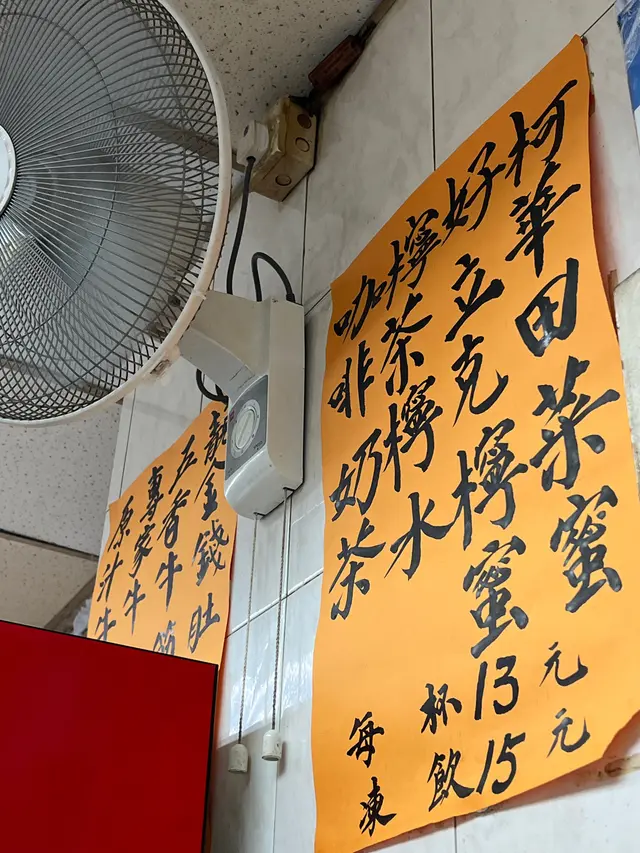 柯華田菜蜜
好立克檸蜜
檸茶檸水
咖啡奶茶
每杯13元
凍飲15元
金錢肚
五香牛
專家牛
原汁牛